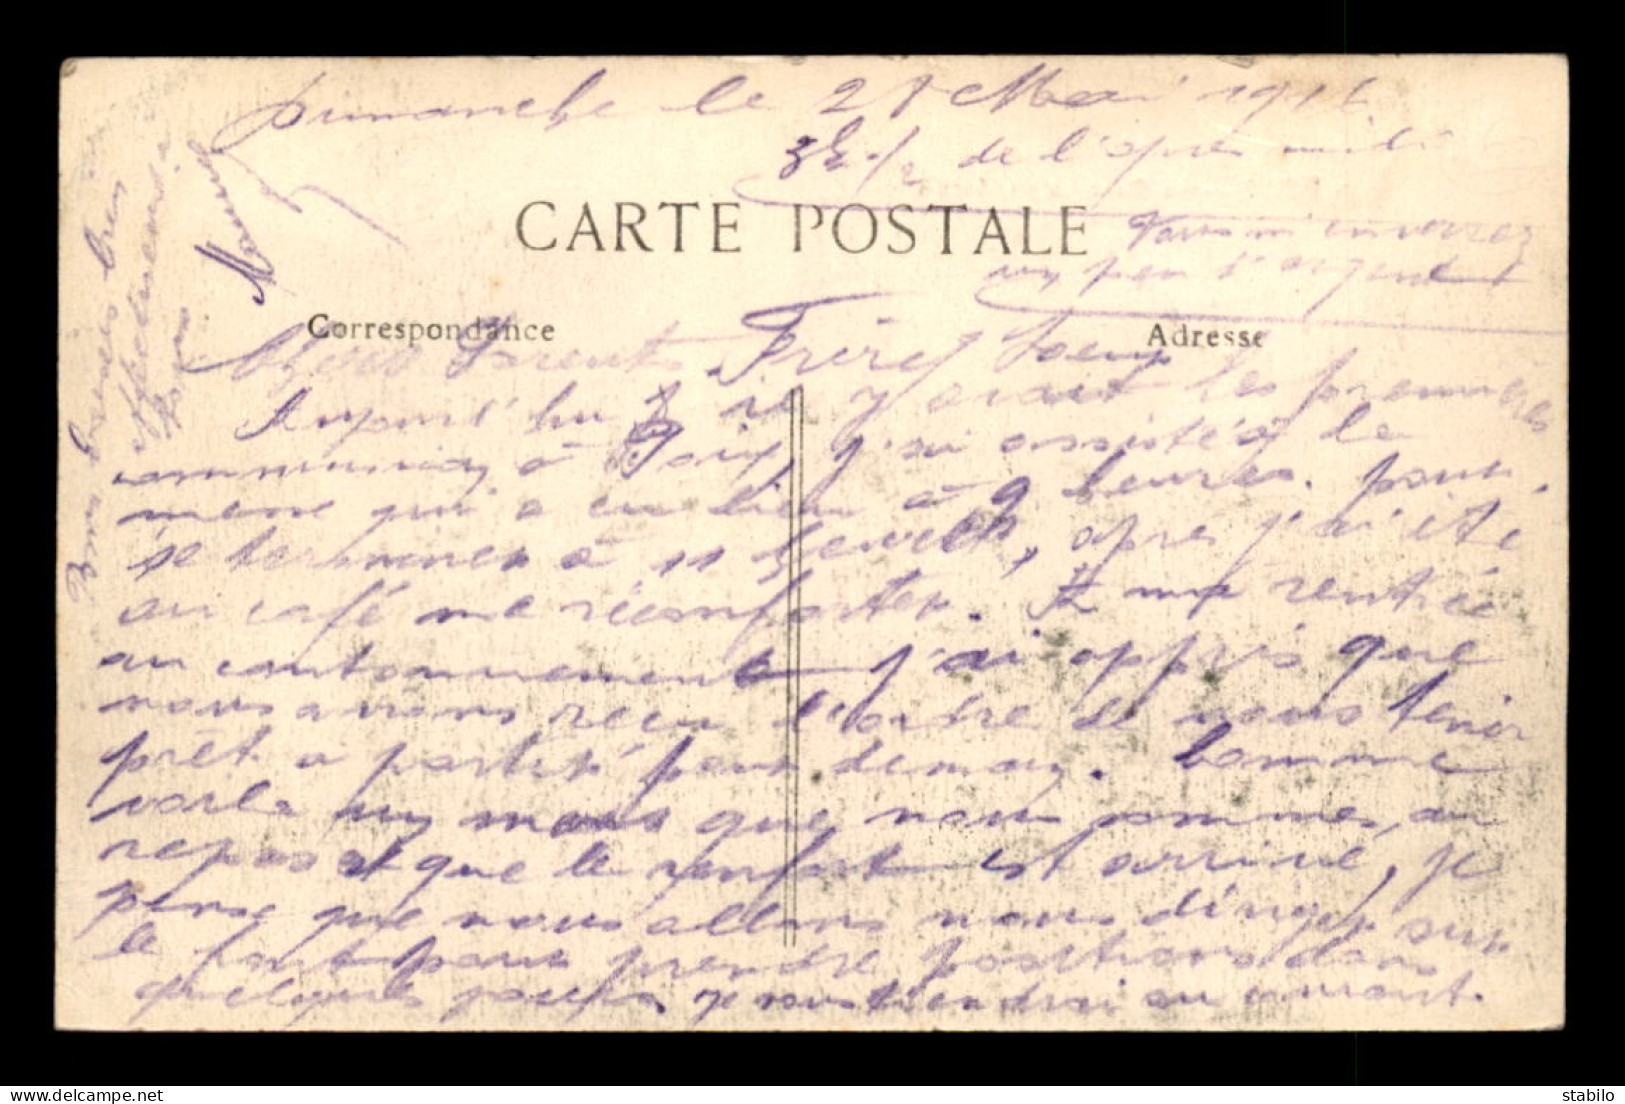 Dimanche le 21 Mai 1916
3h 1/2 de l'après midi
CARTE POSTALE
Vous m'enverrez
un peu d'argent
Correspondance
Adresse
Chers Parents Frère Soeur
Aujourd'hui il y avait les premières
communion à Poix, j'ai assisté à la
messe qui a eu lieu à 9 heures. pour
se terminer à 11 heures, après j'ai été
au café me réconforter. A ma rentrée
au cantonnement j'ai appris que
nous avions reçu l'ordre de nous tenir
prêt a partir pour demain. Comme
voila un mois que nous sommes, au
repos et que le renfort est arrivé, je
pense que nous allons nous diriger sur
le front pour prendre positions dans
quelques jours, je vous tiendrai au courant.
Bons baisers bien
affectueux à
tous
Maurice
stabilo